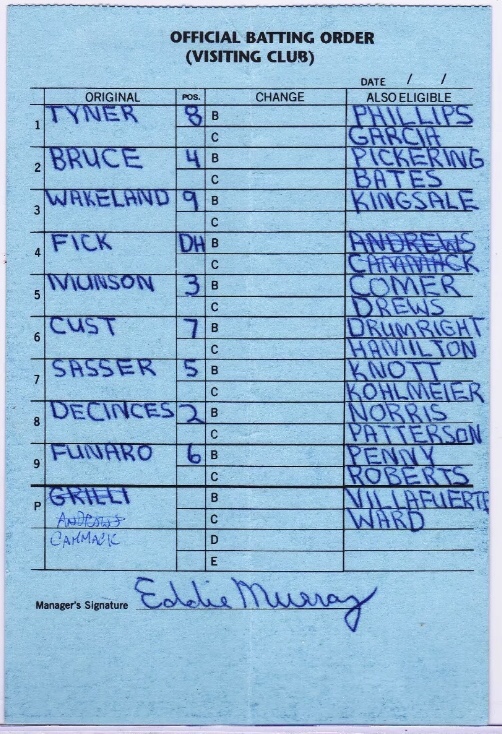 OFFICIAL BATTING ORDER
(VISITING CLUB)
DATE / /
ORIGINAL POS. CHANGE ALSO ELIGIBLE
1 TYNER 8 B PHILLIPS
C GARCIA
2 BRUCE 4 B PICKERING
C BATES
3 WAKELAND 9 B KINGSALE
C
4 FICK DH B ANDREWS
C CAMMACK
5 MUNSON 3 B COMER
C DREWS
6 CUST 7 B DRUMRIGHT
C HAMILTON
7 SASSER 5 B KNOTT
C KOHLMEIER
8 DECINCES 2 B NORRIS
C PATTERSON
9 FUNARO 6 B PENNY
C ROBERTS
P GRILLI B VILLAFUERTE
ANDREWS C WARD
CAMMACK D
E
Manager's Signature Eddie Murray